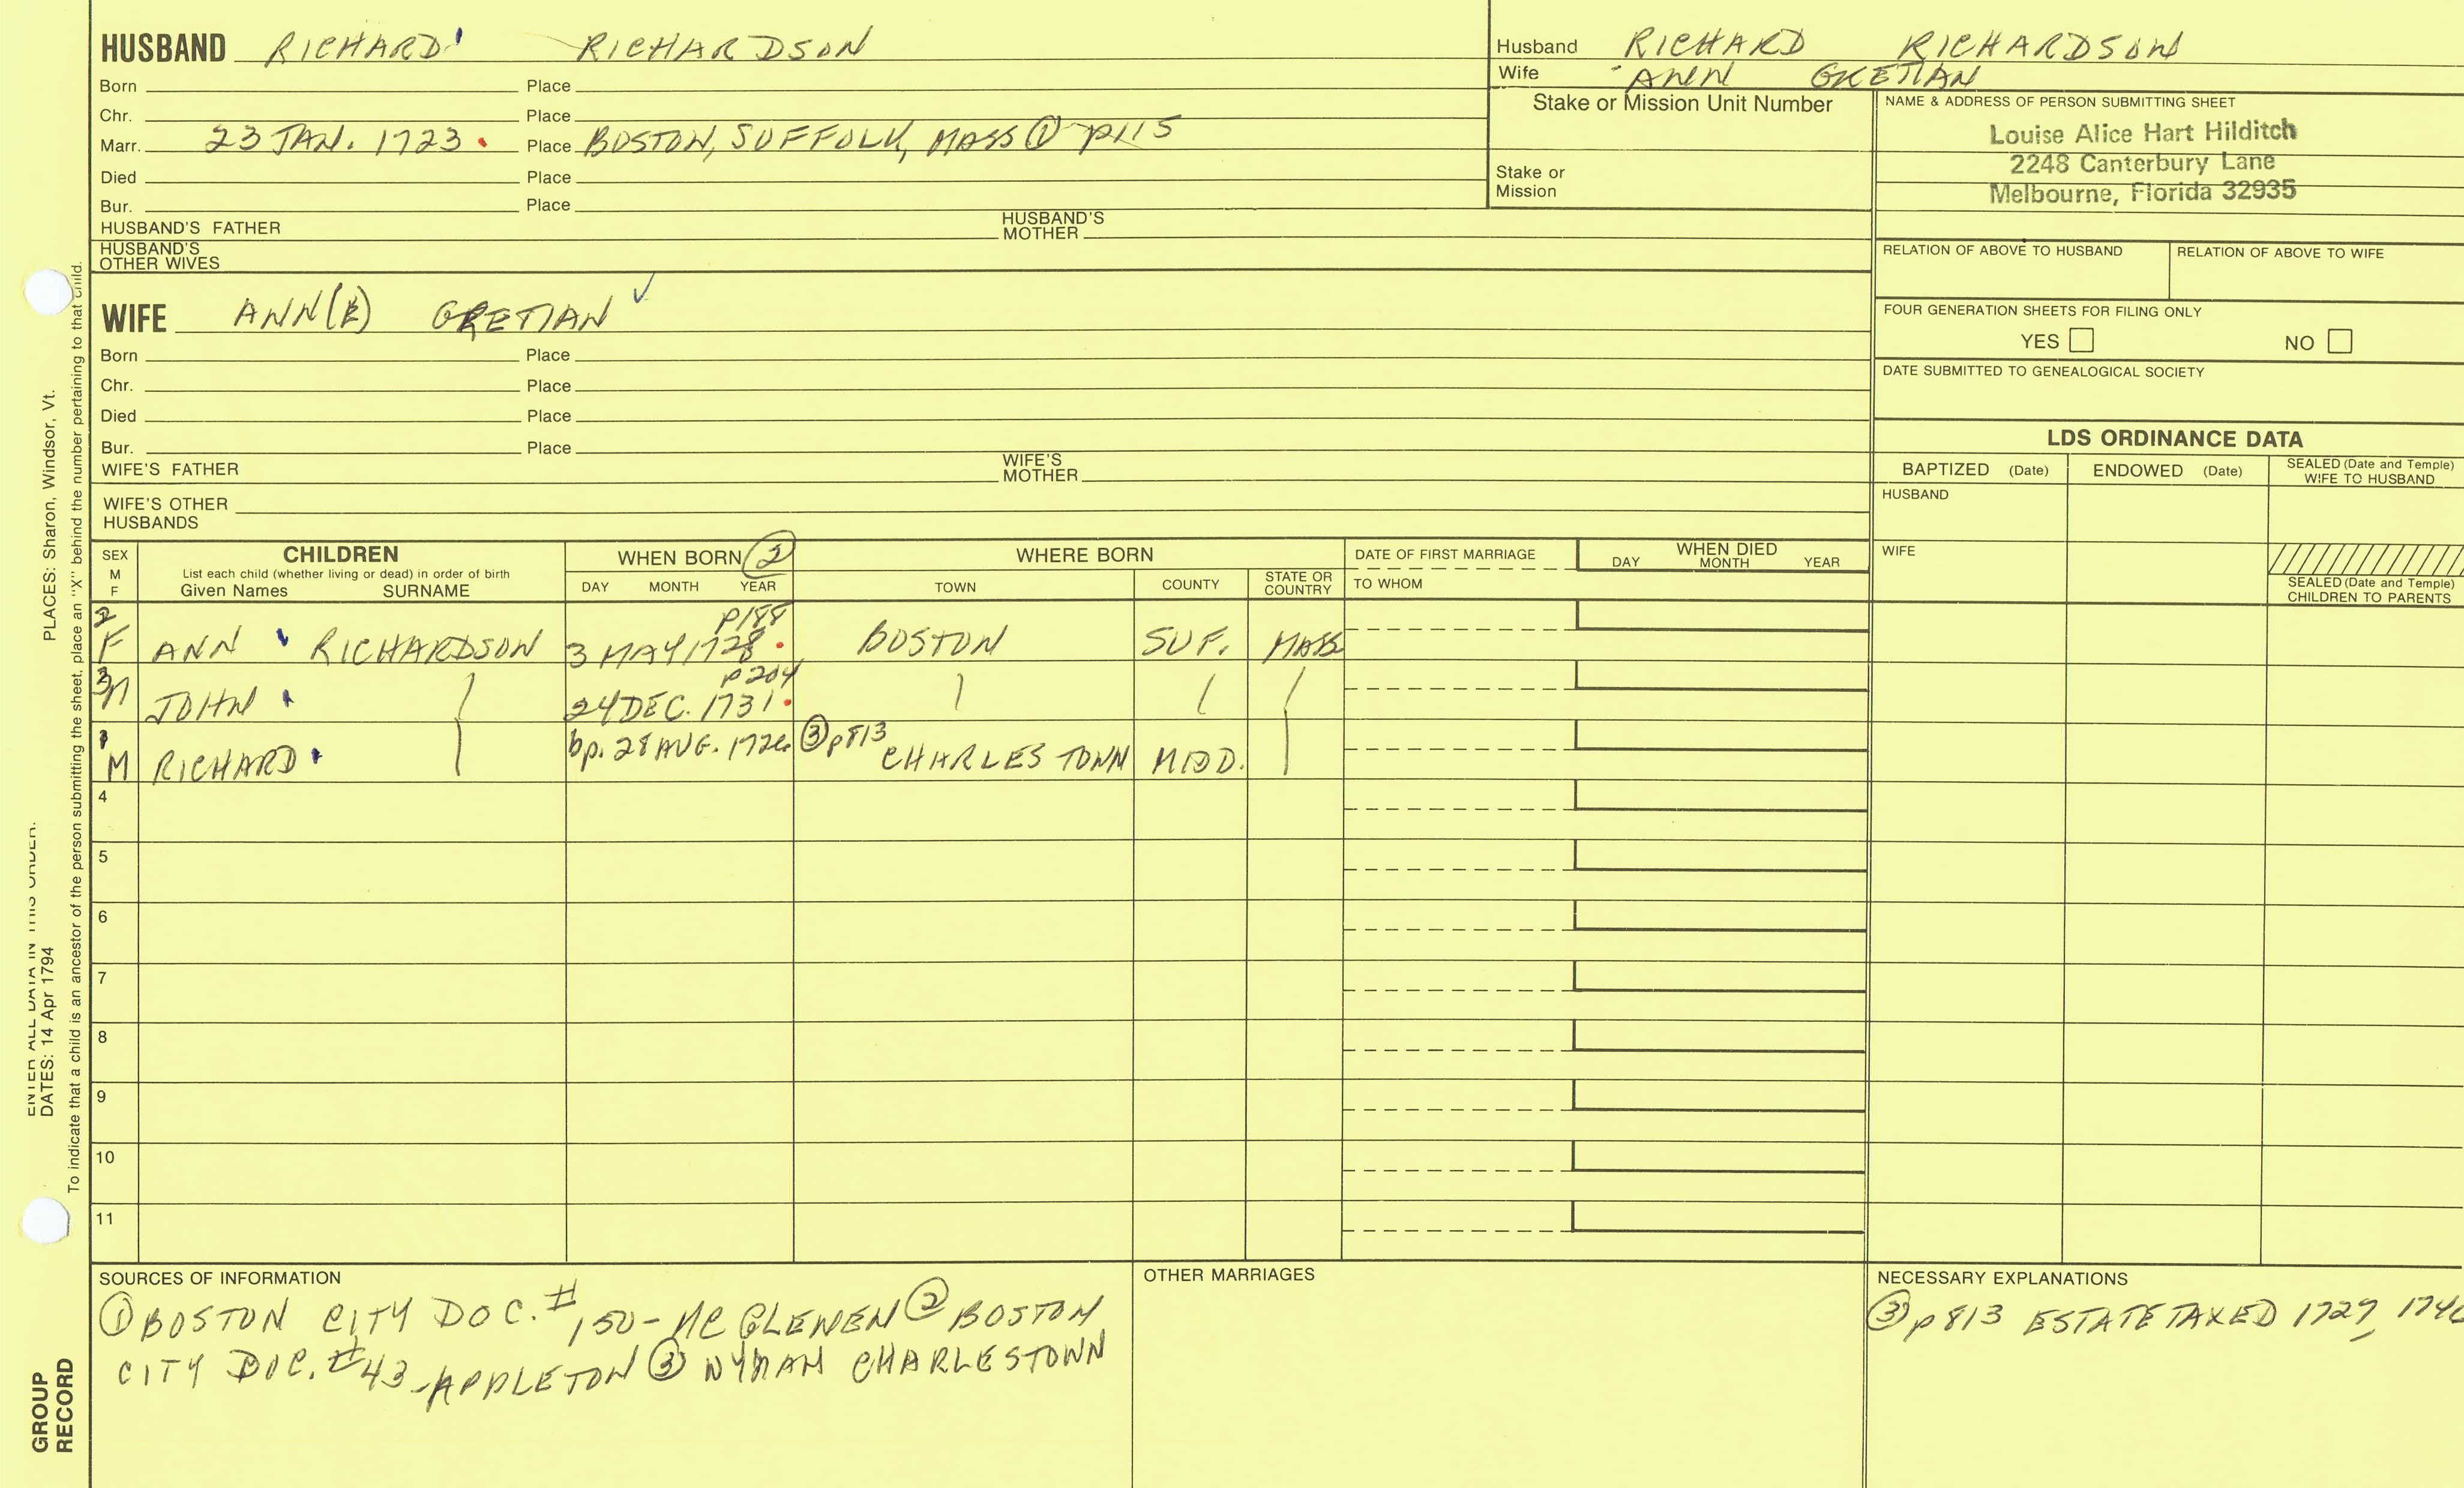 HUSBAND RICHARD RICHARDSON
Born Place
Chr. Place
Marr. 23 JAN. 1723 Place BOSTON, SUFFOLK, MASS ① p115
Died Place
Bur. Place
HUSBAND'S FATHER HUSBAND'S MOTHER
HUSBAND'S OTHER WIVES
Husband RICHARD RICHARDSON
Wife ANN GRETIAN
Stake or Mission Unit Number
Stake or Mission
NAME & ADDRESS OF PERSON SUBMITTING SHEET
Louise Alice Hart Hilditch
2248 Canterbury Lane
Melbourne, Florida 32935
RELATION OF ABOVE TO HUSBAND RELATION OF ABOVE TO WIFE
FOUR GENERATION SHEETS FOR FILING ONLY
YES NO
DATE SUBMITTED TO GENEALOGICAL SOCIETY
WIFE ANN(E) GRETIAN
Born Place
Chr. Place
Died Place
Bur. Place
WIFE'S FATHER WIFE'S MOTHER
WIFE'S OTHER HUSBANDS
LDS ORDINANCE DATA
BAPTIZED (Date) ENDOWED (Date) SEALED (Date and Temple) WIFE TO HUSBAND
HUSBAND
WIFE
SEALED (Date and Temple) CHILDREN TO PARENTS
SEX M F
CHILDREN
List each child (whether living or dead) in order of birth
Given Names SURNAME
WHEN BORN ②
DAY MONTH YEAR
WHERE BORN
TOWN COUNTY STATE OR COUNTRY
DATE OF FIRST MARRIAGE
TO WHOM
WHEN DIED
DAY MONTH YEAR
2 F ANN RICHARDSON 3 MAY 1728 p188 BOSTON SUF. MASS
3 M JOHN 24 DEC. 1731 p204
1 M RICHARD bp. 28 AUG. 1726 ③ p813 CHARLES TOWN MIDD.
4
5
6
7
8
9
10
11
SOURCES OF INFORMATION
① BOSTON CITY DOC. # 150-MC GLENEN ② BOSTON
CITY DOC. #43-APPLETON ③ WYMAN CHARLESTOWN
OTHER MARRIAGES
NECESSARY EXPLANATIONS
③ p813 ESTATE TAXED 1727,
PLACES: Sharon, Windsor, Vt.
DATES: 14 Apr 1794
To indicate that a child is an ancestor of the person submitting the sheet, place an "X" behind the number pertaining to that child.
GROUP
RECORD